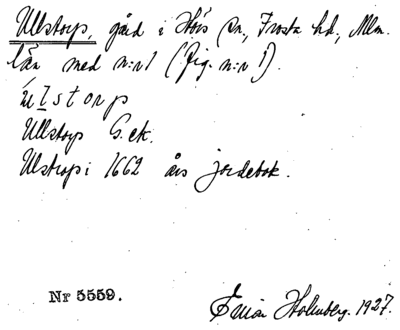 Ullstorp, gård i Hörs sn, Frosta hd, Mlm.
län med n:r 1 (Fig. n:r 1).
ú l s t o r p
Ullstorp G.ek.
Ulstrop i 1662 års jordebok.
Nr 5559. Einon Holmberg. 1927.